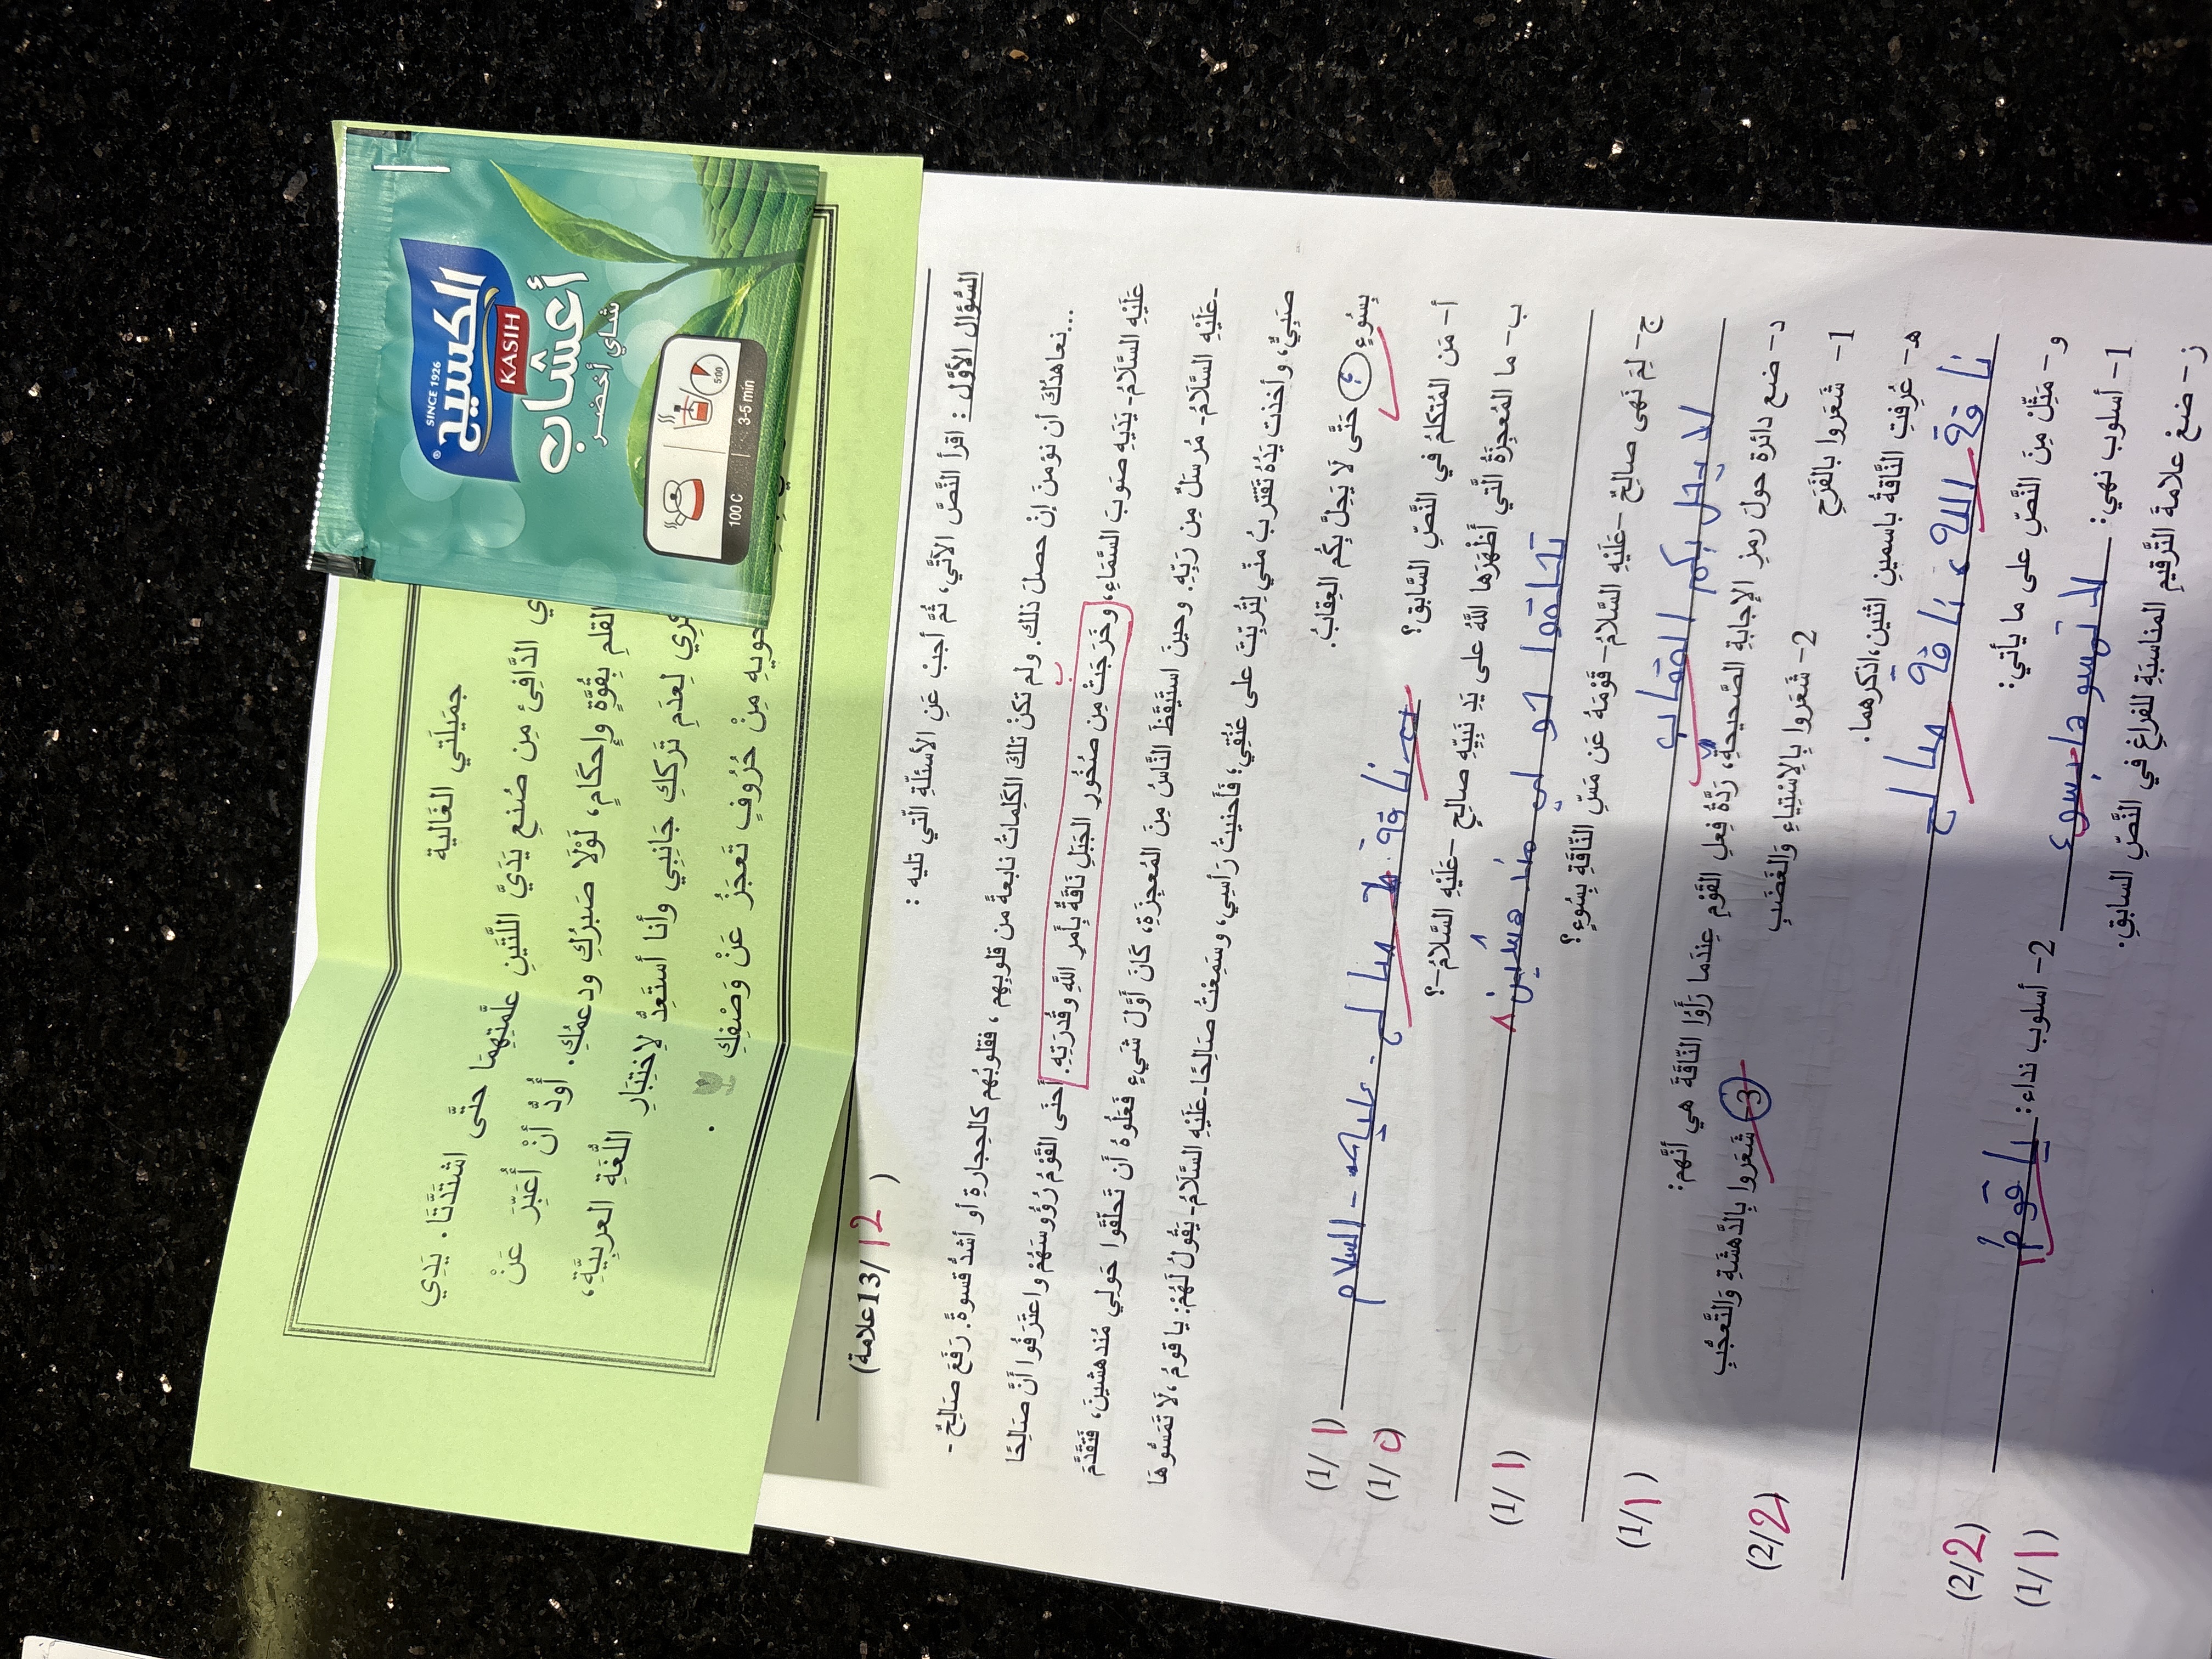 SINCE 1926
الكسيح
®
KASIH
أعشاب
شاي أخضر
100 C
3-5 min
5:00
جميلَتي الغَالية
ي الدَّافِئ مِن صُنعِ يَدَيَّ اللَّتَينِ علَّمتِهِمَا حتَّى اشتَدَّتَا. يَدِي
القلمِ بِقُوَّةٍ وإِحكَامٍ، لَوْلَا صَبرُكِ ودعمُكِ. أودُّ أَنْ أُعَبِّرَ عَنْ
رِي لِعدَمِ تَركِكِ جَانِبِي وأَنا أَستَعِدُّ لاِختِبَارِ اللُّغَةِ العربِيَّةِ،
حوِيهِ مِنْ حُرُوفٍ تَعجَزُ عَنْ وَصْفِكِ .
(13/12علامة)
السُّؤَالُ الأوَّل : اقرأ النَّصَّ الآتي، ثُمَّ أجبْ عَنِ الأسئلَةِ الَّتي تليه :
...نعاهدُكَ أن نؤمنَ إنْ حصل ذلك. ولم تكنْ تلكَ الكلِماتُ نابعةً من قلوبِهِم ، فقلوبُهم كالحِجارةِ أو أشدُّ قسوةً. رَفَعَ صَالِحٌ -
عَلَيْهِ السَّلَامُ- يَدَيهِ صَوبَ السَّمَاءِ، وخَرَجَتْ مِن صُخُورِ الجَبَلِ نَاقَةٌ بِأَمرِ اللَّهِ وقُدرَتِهِ. أحنَى القَوْمُ رُؤُوسَهُمْ واعتَرَفُوا أَنَّ صَالِحًا
ب
-عَلَيْهِ السَّلَامُ- مُرسَلٌ مِن رَبِّهِ. وحينَ استَيْقَظَ النَّاسُ مِنَ المُعجِزَةِ، كَانَ أَوَّلَ شَيءٍ فَعَلُوهُ أَن تَحلَّقوا حَولي مُندهشينَ، فَتَقَدَّمَ
صَبيٌّ، وأخذت يَدُهُ تَقْتَرِبُ منّي لِتُرَبِّتَ على عُنُقِي؛ فَأَحنَيتُ رَأسِي، وسَمِعْتُ صَالِحًا-عَلَيْهِ السَّلَامُ- يَقُولُ لَهُمْ: يا قومُ، لَا تَمَسُّوهَا
بِسُوءٍ (؛) حَتَّى لَا يَحِلَّ بِكُم العِقابُ.
أ- مَن المُتكلمُ في النَّصِّ السَّابق؟ (1/1)
ناقة صالح - عليه - السلام
ب- ما المُعجِزَةُ الَّتي أَظْهَرَها اللَّهُ على يَدِ نَبيّه صالحٍ -عَلَيْهِ السَّلَامُ-؟ (1/0)
تحلقوا حولي مندهشين
ج- لِمَ نَهى صالحٌ -عَلَيْهِ السَّلَامُ- قَوْمَهُ عَن مَسِّ النَّاقَةِ بِسُوءٍ؟ (1/1)
لا يحل بكم العقاب
د- ضع دائرة حول رمزِ الإجابةِ الصَّحيحةِ، رَدَّةُ فِعلِ القَوْمِ عِندَما رَأَوُا النَّاقَةَ هي أنَّهم: (1/1)
1- شَعَروا بالفَرَحِ 2- شَعَروا بِالِاسْتِياءِ وَالغَضَبِ 3- شَعَروا بِالدَّهشَةِ وَالتَّعَجُّبِ
هـ- عُرِفتِ النَّاقَةُ باسمينِ اثنَينِ،اذكرهما. (2/2)
ناقة الله ، ناقة صالح
و- مَثِّلْ مِنَ النَّصِّ على ما يأتي: (2/2)
1- أسلوب نهي: لا تمسوها بسوء 2- أسلوب نداء: يا قومُ
ز- ضعْ علامةَ التَّرقيمِ المناسبَةِ للفراغِ في النَّصِّ السابقِ. (1/1)